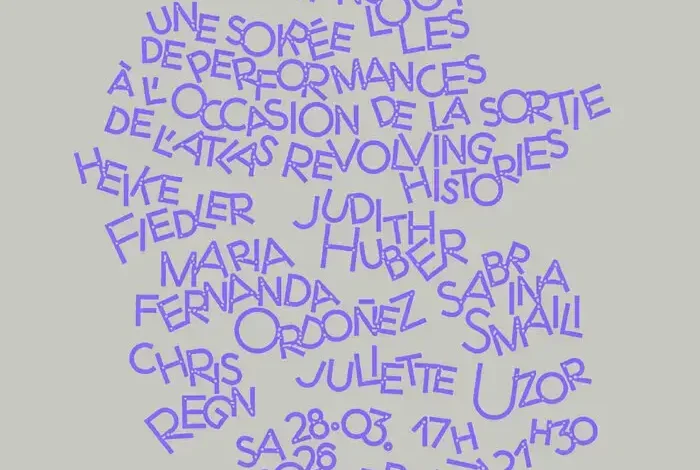 UNE SOIRÉE
LES
DE PERFORMANCES
À L'OCCASION DE LA SORTIE
DE L'ATLAS REVOLVING
HISTORIES
HEIKE
FIEDLER
JUDITH
HUBER
MARIA
FERNANDA
ORDOÑEZ
SABRINA
SMAILI
CHRIS
REGN
JULIETTE UZOR
SA 28.03. 17H
26
21H30